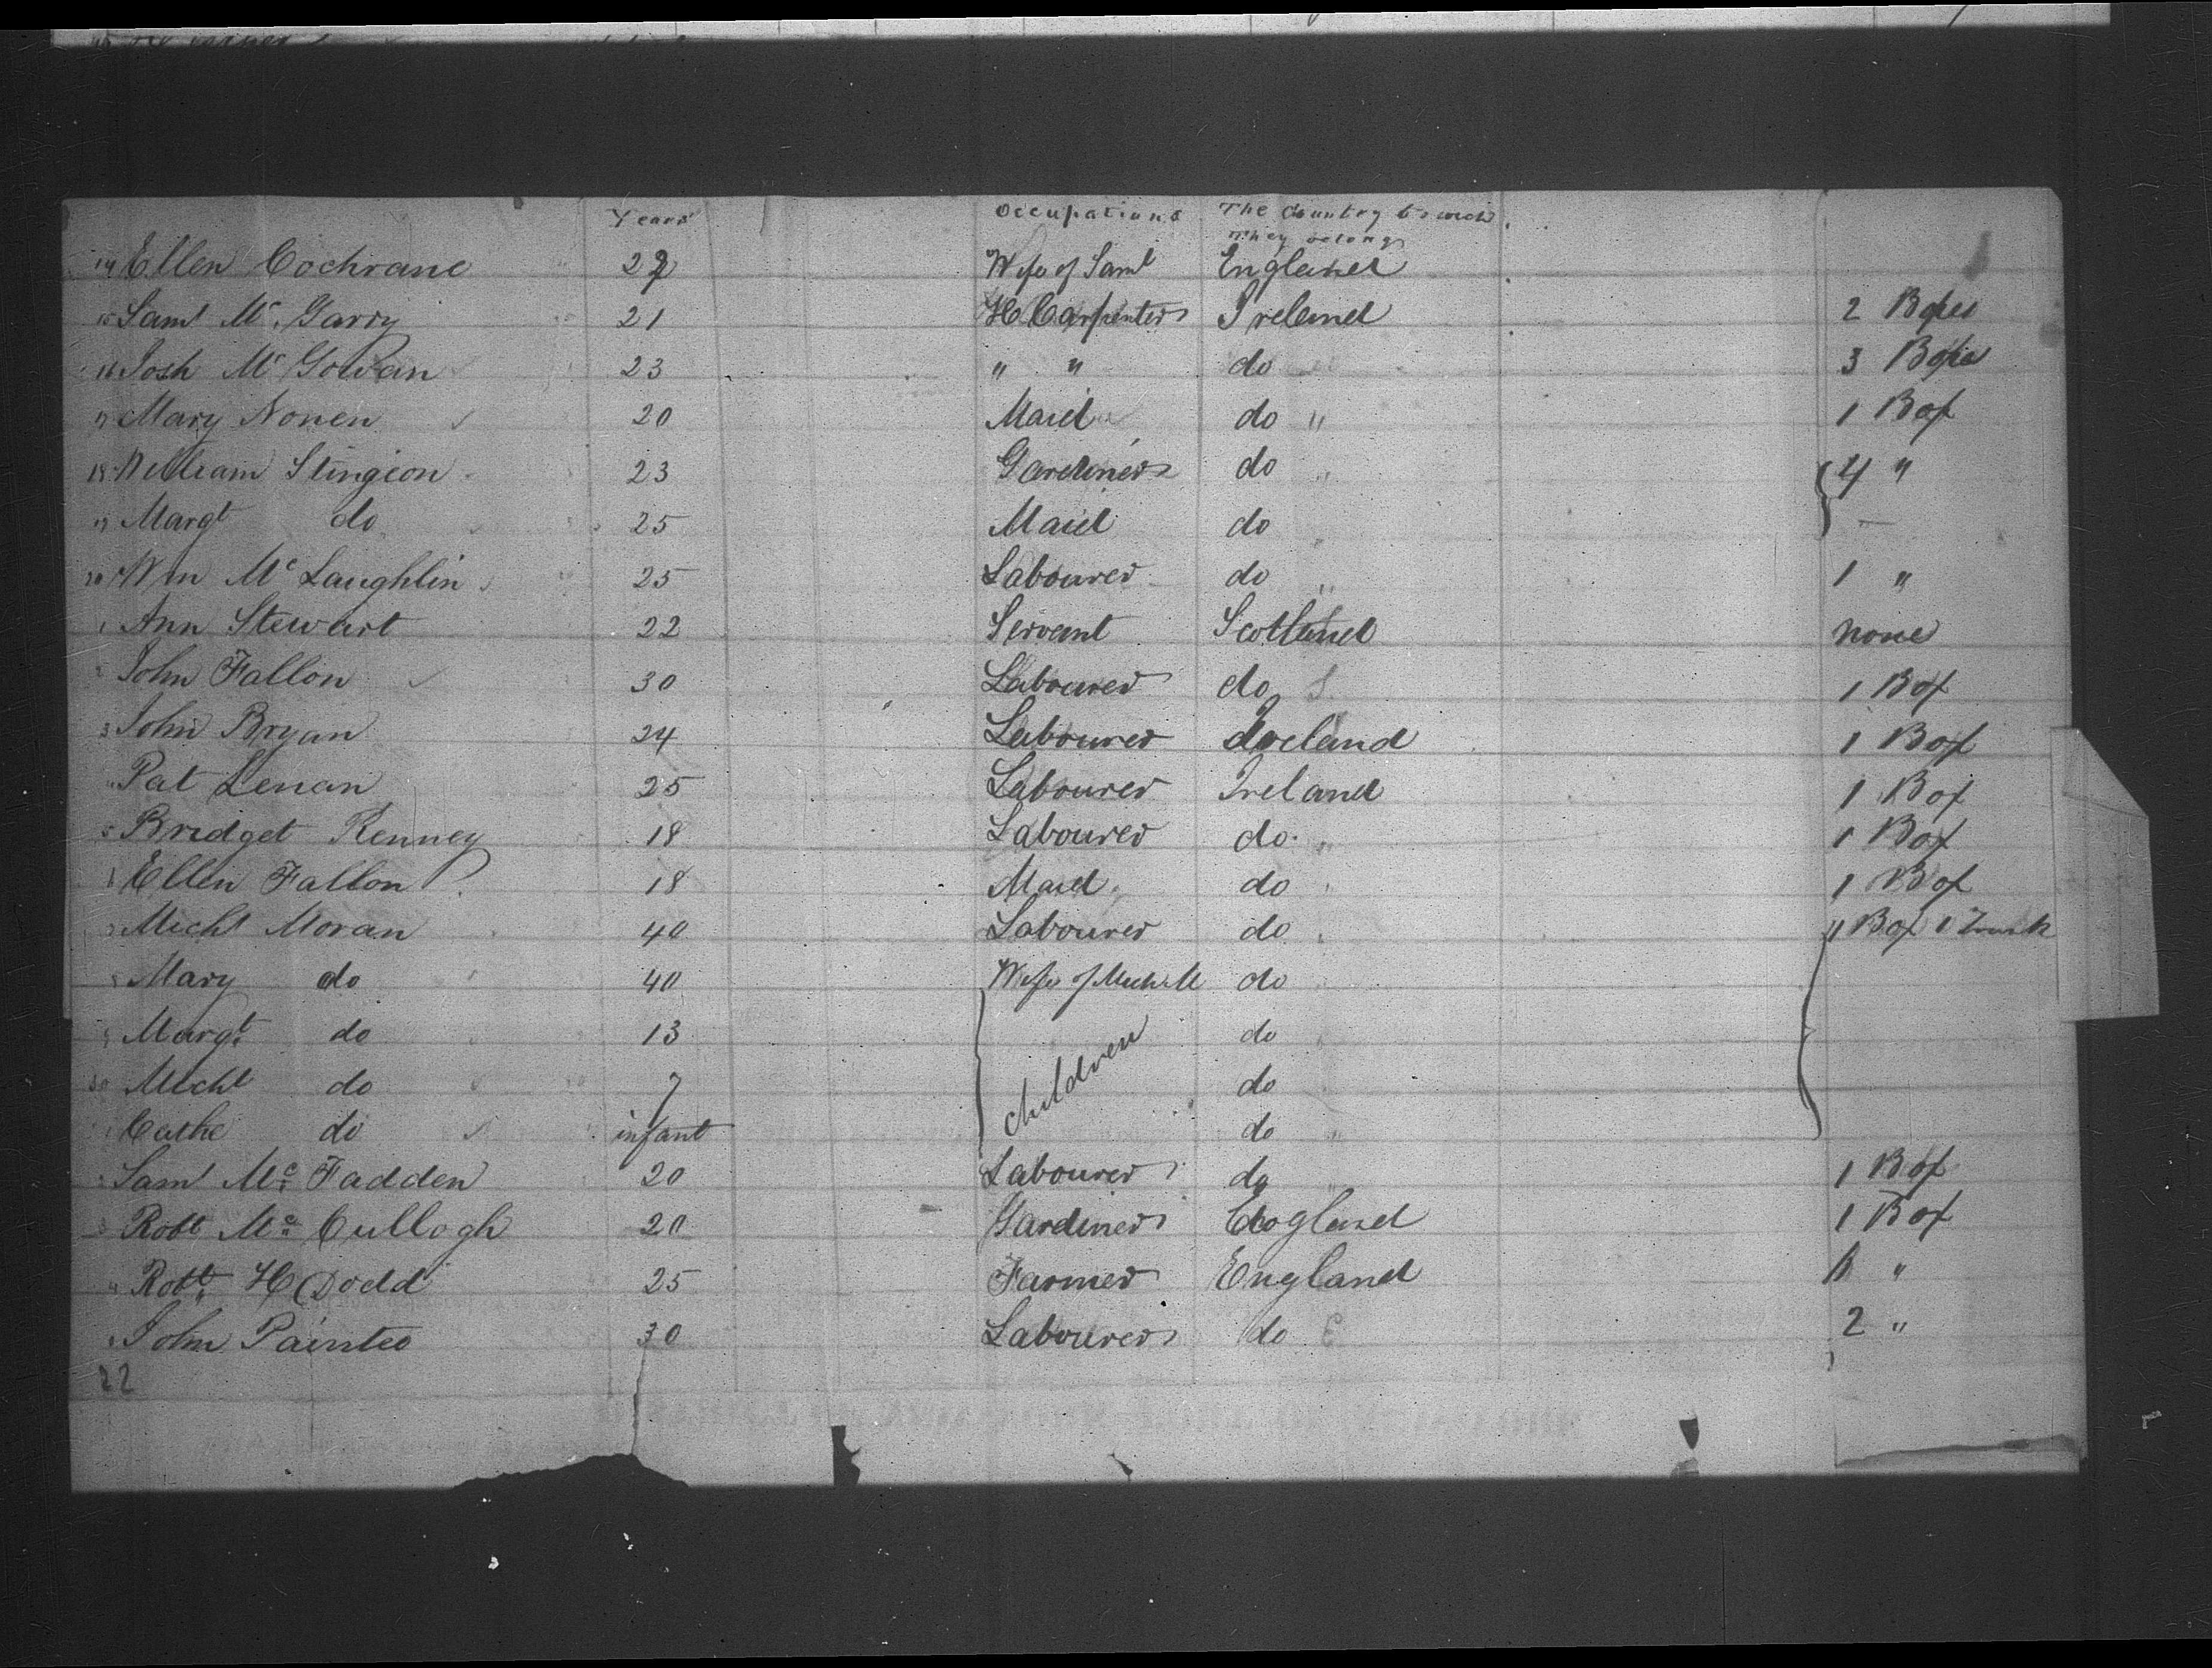 Years Occupations The Country to wich
They belong
14 Ellen Cochrane 22 Wife of Saml England
15 Saml Mc Garry 21 H Carpenter Ireland 2 Boxes
16 Josh Mc Gowan 23 " " do 3 Boxes
17 Mary Nonen 20 Maid do " 1 Box
18 William Stingion 23 Gardiner do " 4 "
19 Margt do 25 Maid do
20 Wm Mc Laughlin 25 Labourer do " 1 "
1 Ann Stewart 22 Servant Scotland none
2 John Fallon 30 Labourer do 1 Box
3 John Bryan 24 Labourer Ireland 1 Box
4 Pat Lenan 25 Labourer Ireland 1 Box
5 Bridget Kenney 18 Labourer do " 1 Box
6 Ellen Fallon 18 Maid do 1 Box
7 Michl Moran 40 Labourer do 11 Box 1 Trunk
8 Mary do 40 Wife of Michll do
9 Margt do 13 children do
30 Michl do 7 do
1 Cathe do infant do "
2 Saml Mc Fadden 20 Labourer do 1 Box
3 Robt Mc Cullogh 20 Gardiner England 1 Box
4 Robt H Dodd 25 Farmer England "
5 John Painter 30 Labourer do E 2 "
22